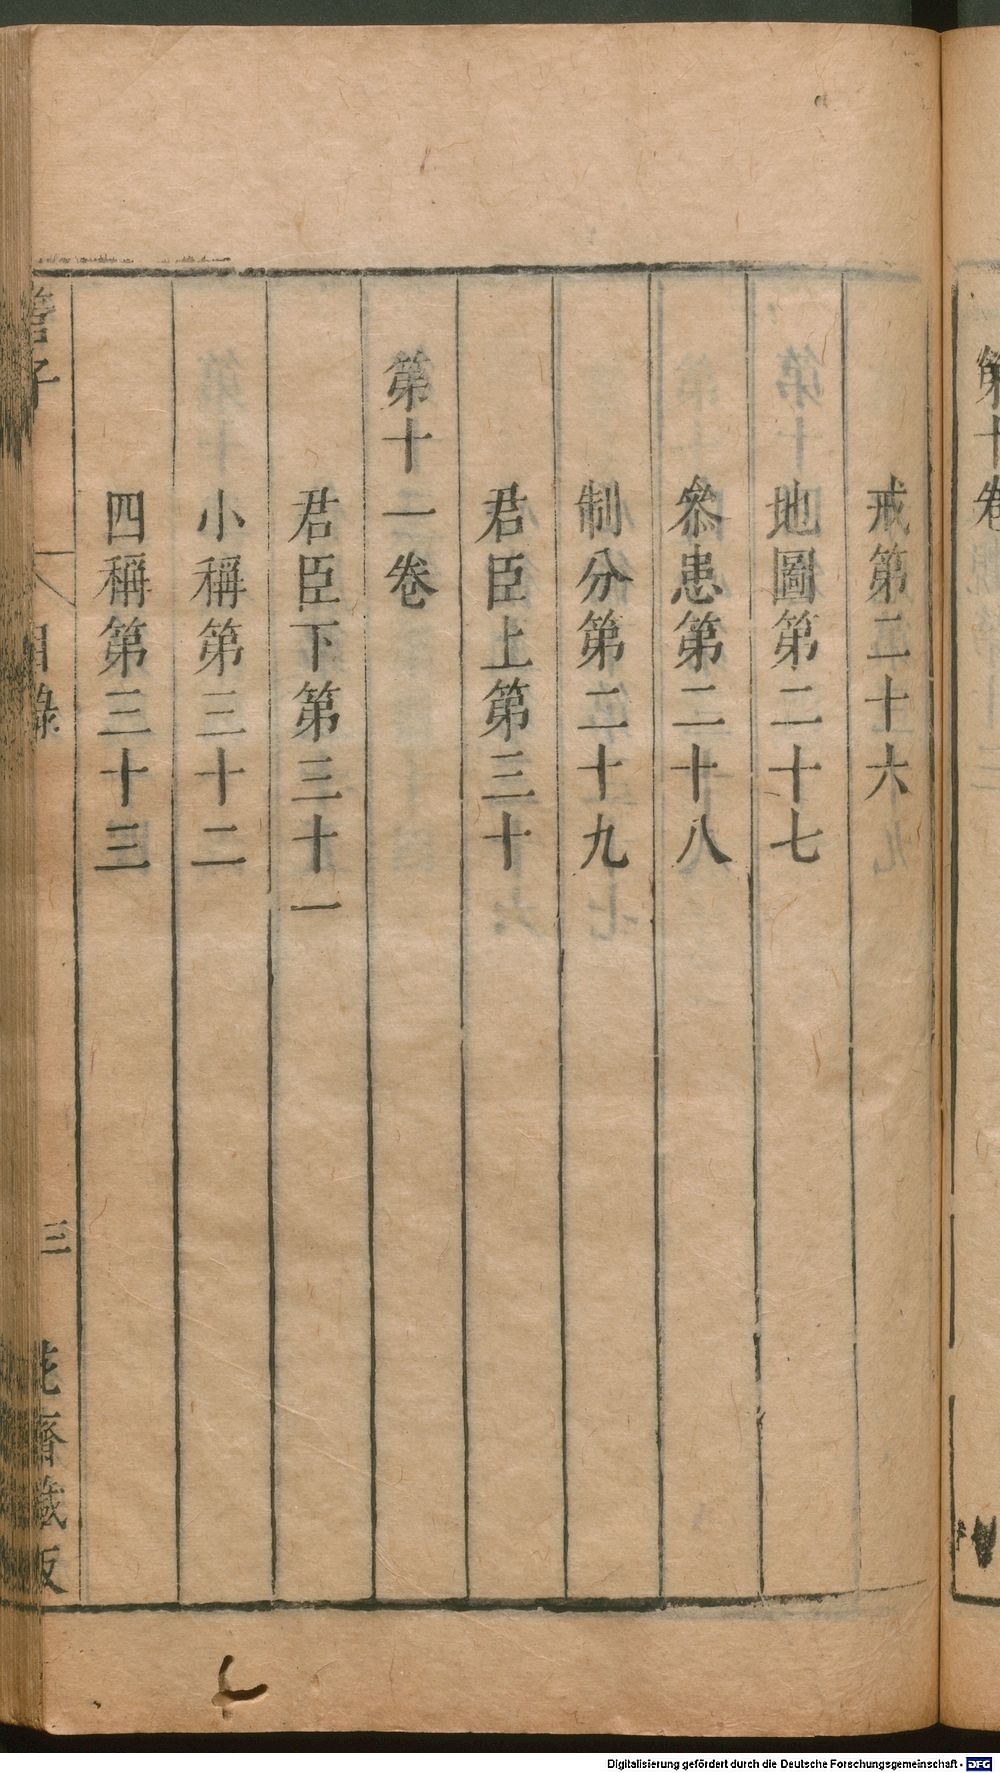 第十卷
戒第二十六
地圖第二十七
叅患第二十八
制分第二十九
君臣上第三十
第十一卷
君臣下第三十一
小稱第三十二
四稱第三十三
管子
目錄
三
花齋藏板
Digitalisierung gefördert durch die Deutsche Forschungsgemeinschaft - DFG